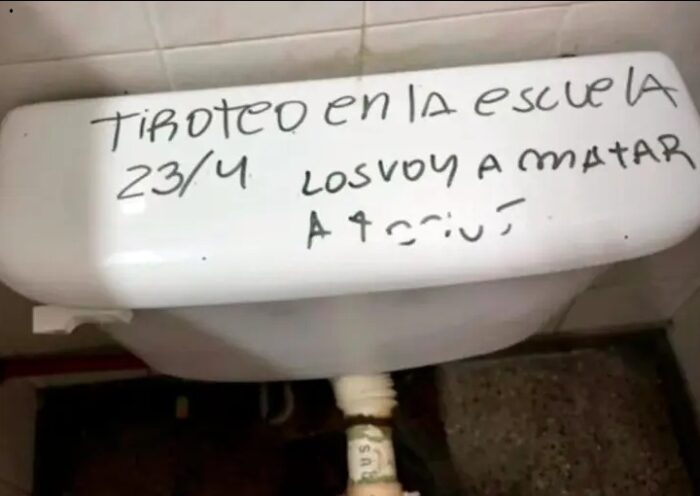 TIROTEO en lA escuelA
23/4 LOS VOY A mAtAR
A